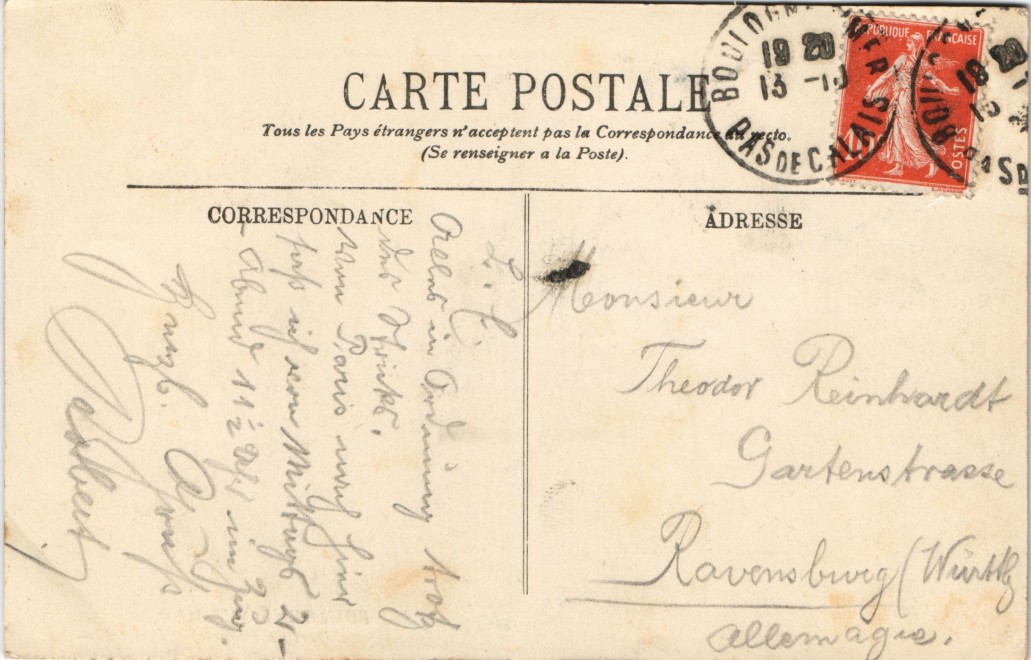 CARTE POSTALE
Tous les Pays étrangers n'acceptent pas la Correspondance au recto.
(Se renseigner a la Poste).
BOULOGNE MER
19 20
13 -10
PAS DE CALAIS
RÉPUBLIQUE FRANÇAISE
POSTES
CORRESPONDANCE
ADRESSE
L. E.
Alles in Ordnung trotz
des Streiks.
von Paris nach hier
saß ich von Mittags 2 -
- Abend 11 1/2 im Zug.
Herzl. Gruß
Monsieur
Theodor Reinhardt
Gartenstrasse
Ravensburg (Württbg
Allemagne.